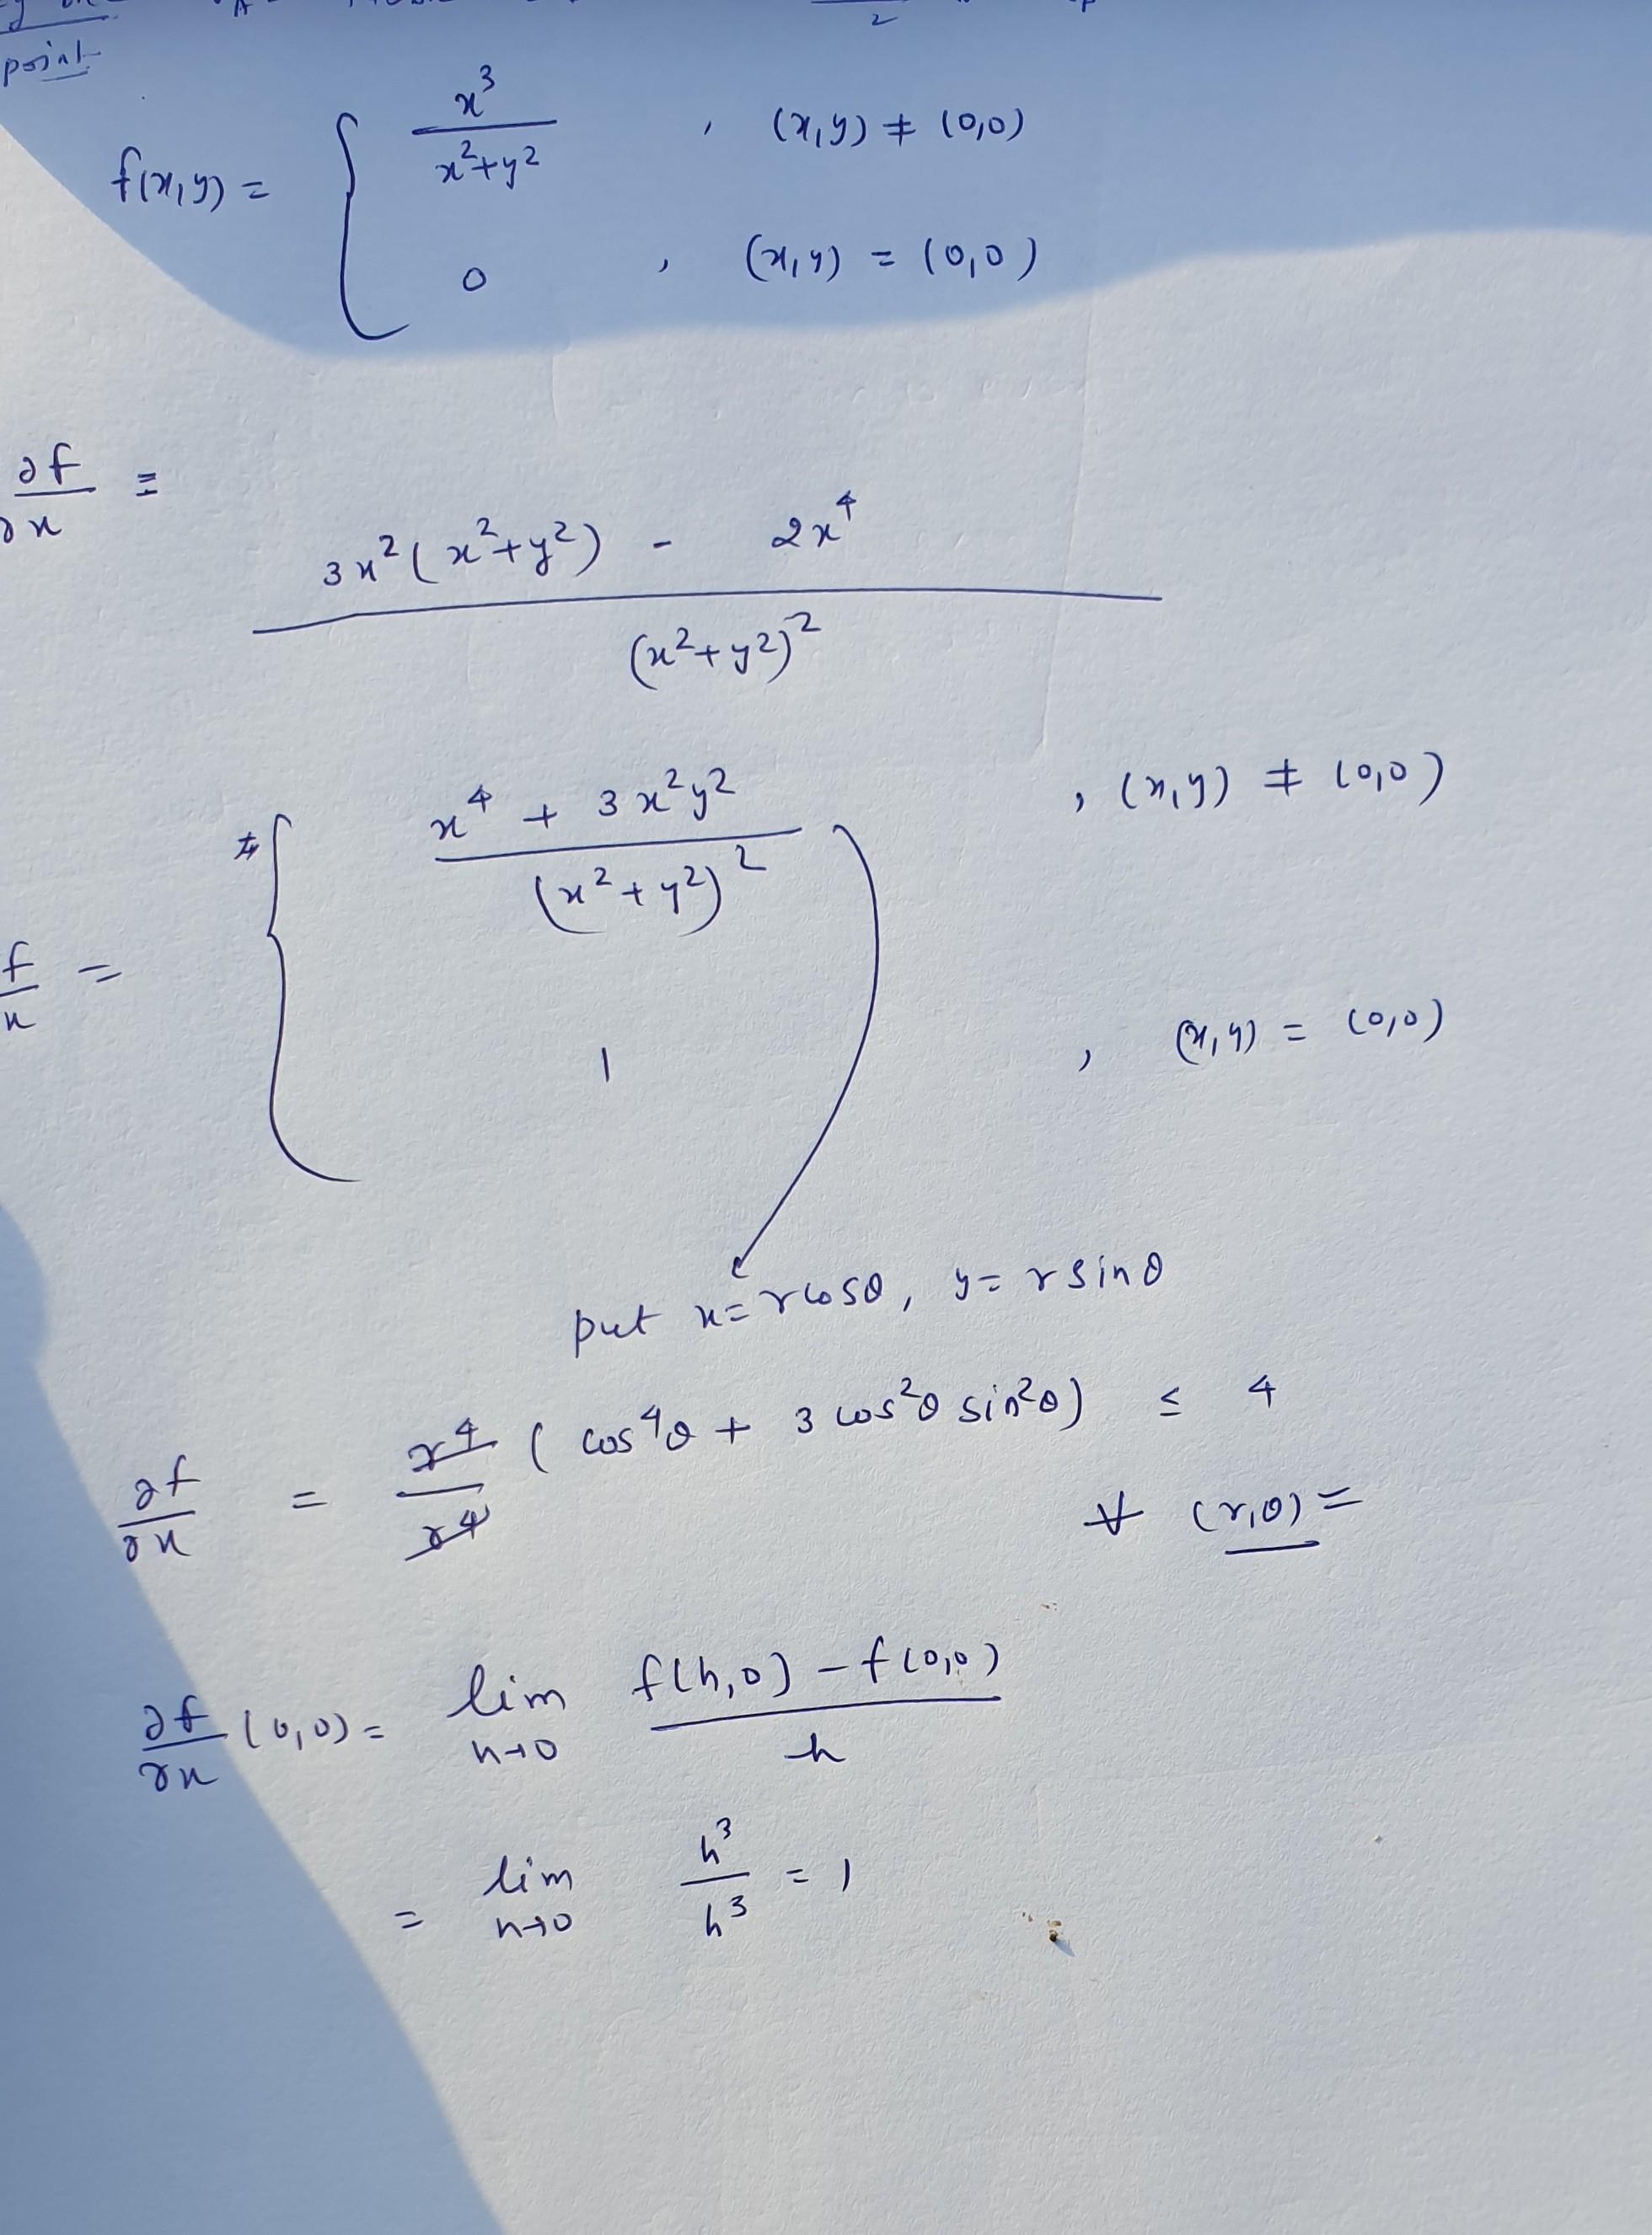 point
f(x,y) = { x³ / (x²+y²) , (x,y) ≠ (0,0)
0 , (x,y) = (0,0)
∂f/∂x =
3x²(x²+y²) - 2x⁴ / (x²+y²)²
x⁴ + 3x²y² / (x²+y²)² , (x,y) ≠ (0,0)
f/x = {
1 , (x,y) = (0,0)
put x = r cosθ, y = r sinθ
∂f/∂x = r⁴/r⁴ (cos⁴θ + 3 cos²θ sin²θ) ≤ 4
∀ (r,θ) =
∂f/∂x (0,0) = lim h→0 f(h,0) - f(0,0) / h
= lim h→0 h³/h³ = 1